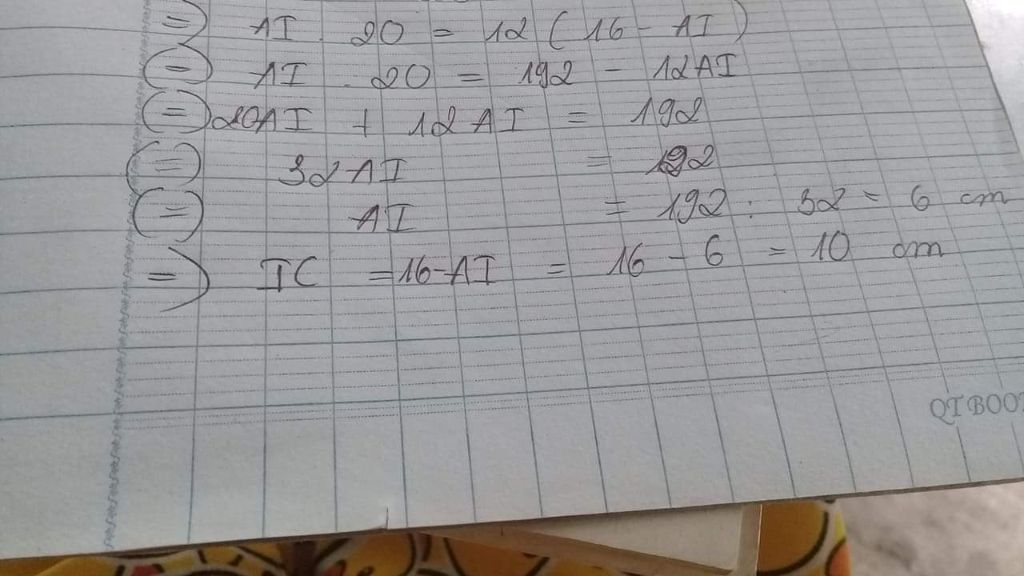 => AI . 20 = 12 ( 16 - AI )
(=) AI . 20 = 192 - 12AI
(=) 20AI + 12AI = 192
(=) 32AI = 192
(=) AI = 192 : 32 = 6 cm
=> IC = 16-AI = 16 - 6 = 10 cm